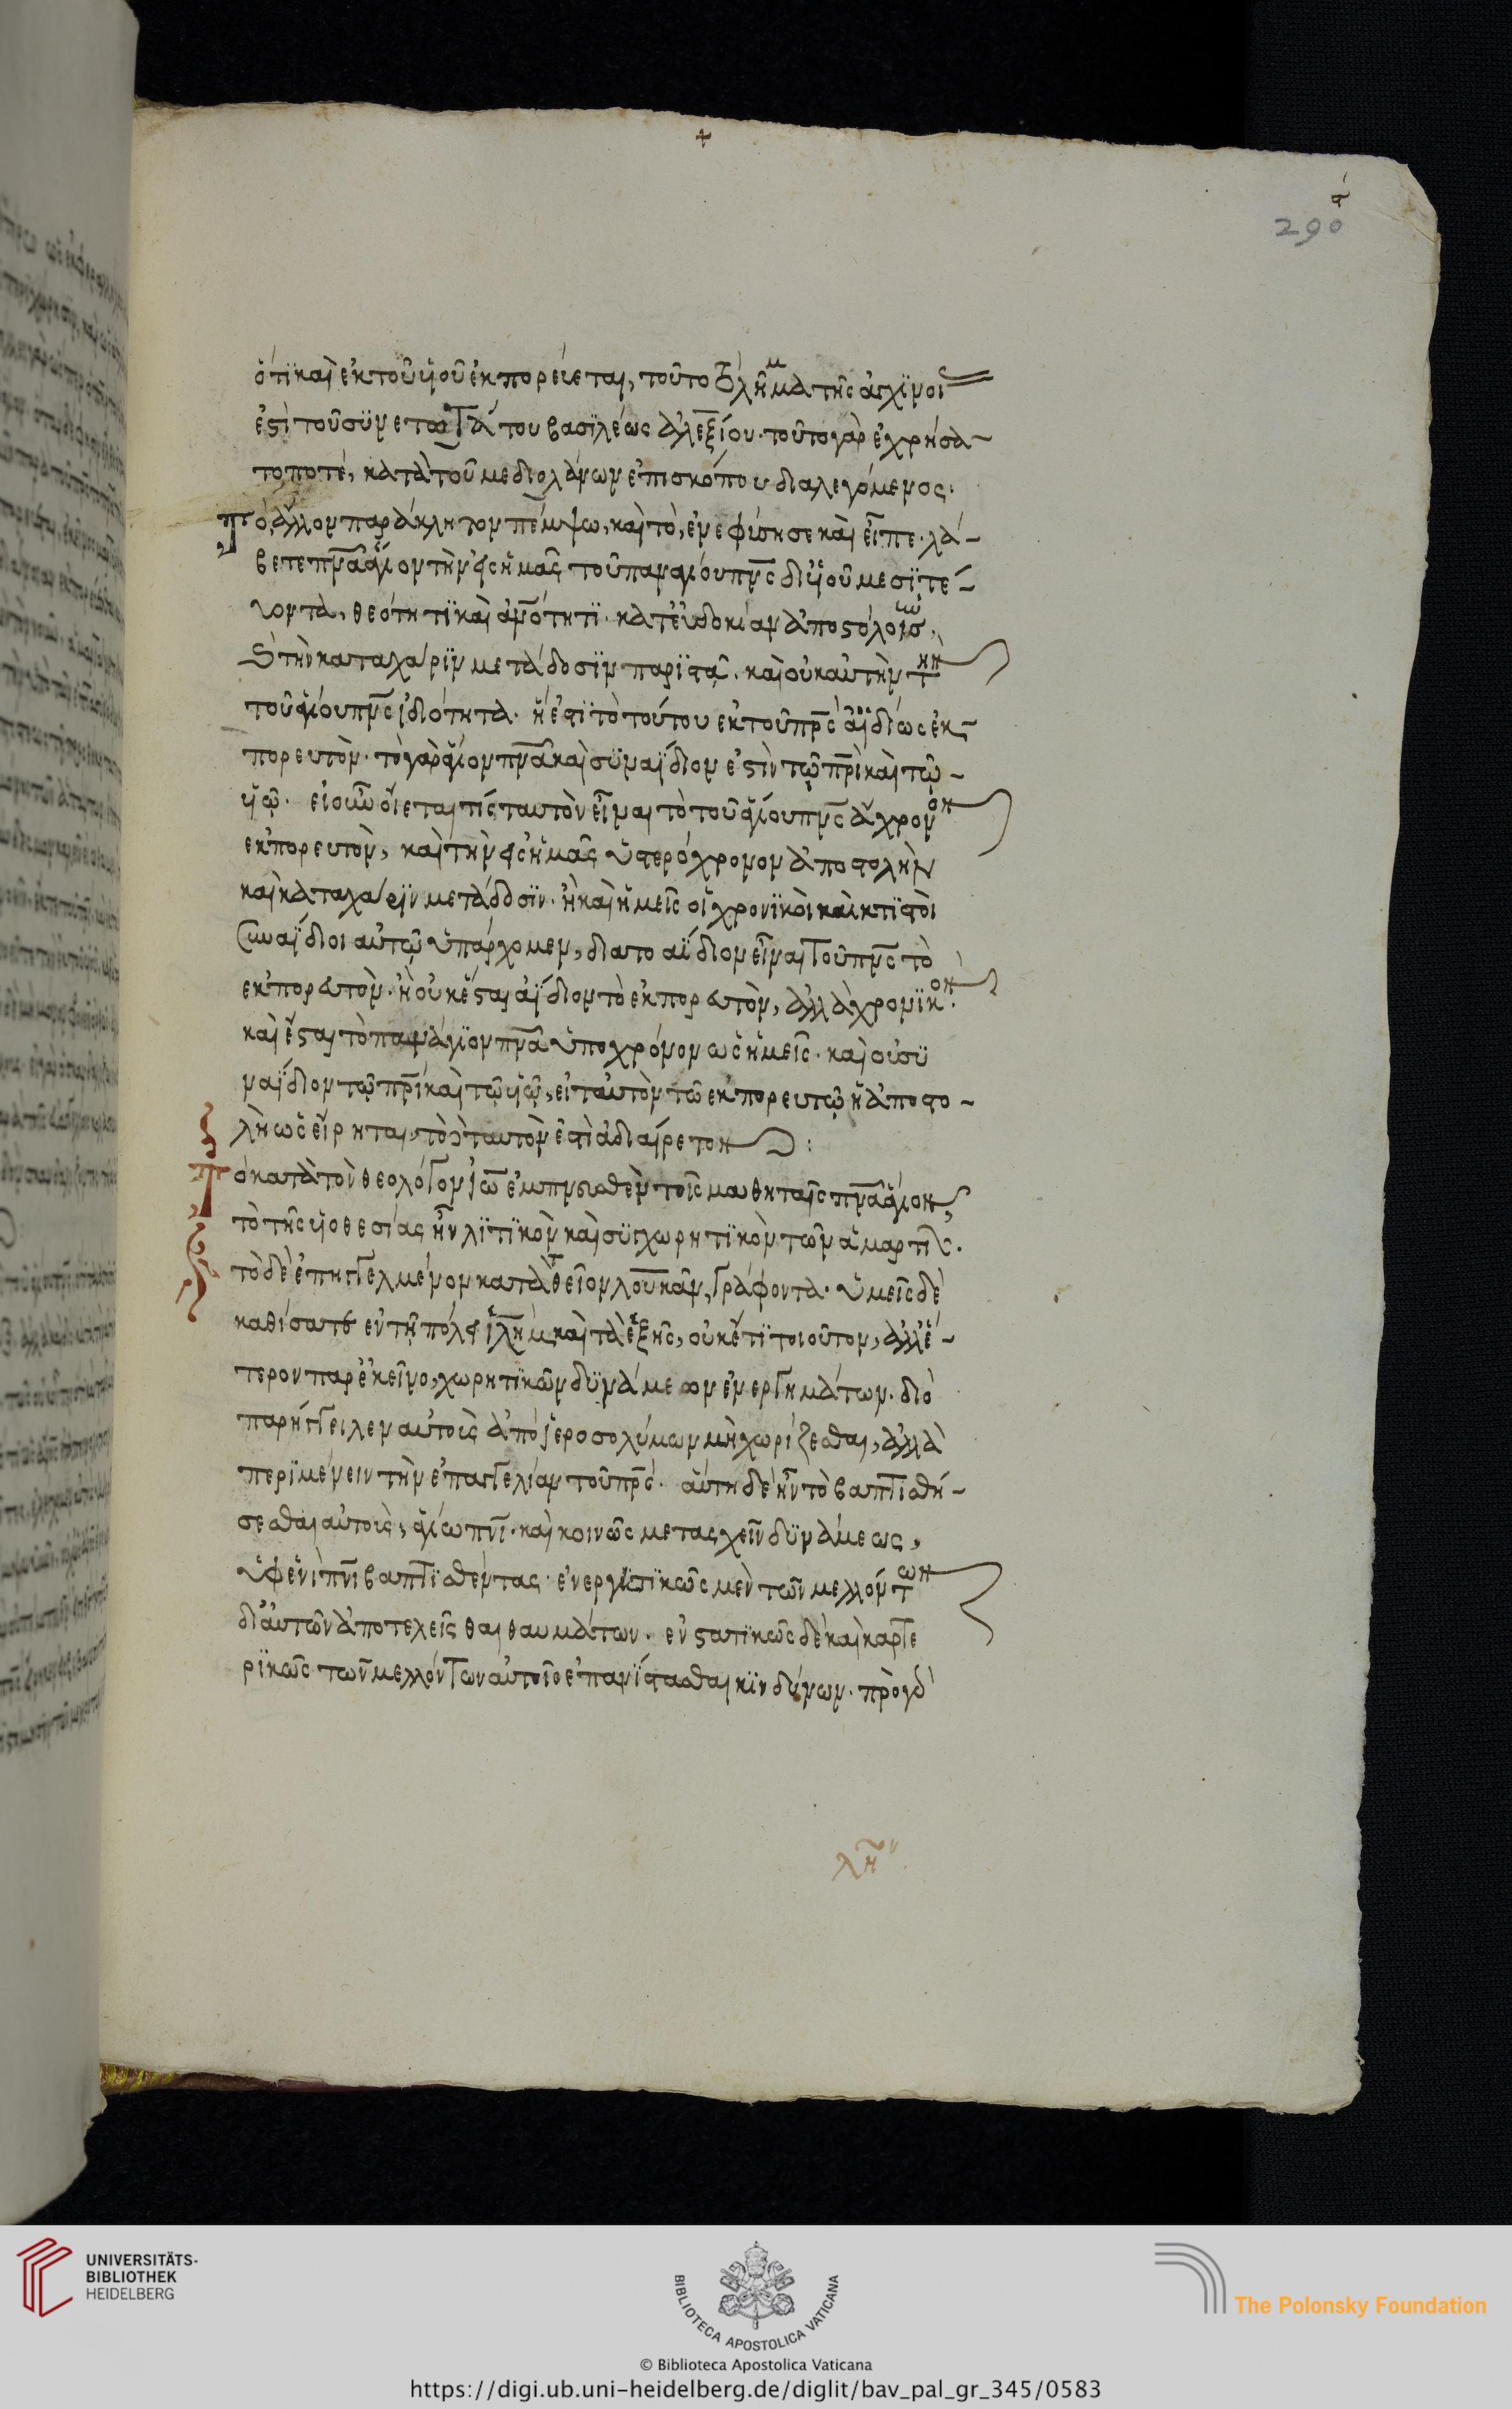 290
ὅτι καὶ ἐκ τοῦ υἱοῦ ἐκπορεύεται, τοῦτο τῆς
ἐστὶ τοῦ βασιλέως ἀλεξίου. τοῦτο γὰρ ἐχρήσα-
το ποτὲ, κατὰ τοῦ μεδιολάνων ἐπισκόπου διαλεγόμενος.
Τὸ, ἄλλον παράκλητον πέμψω, καὶ τὸ, ἐνεφύσησε καὶ εἶπε. λά-
βετε πνᾶ ἅγιον τὴν ἡμᾶς τοῦ παναγίου πνς δι υἱοῦ
θεότητι καὶ κατ' εὐδοκίαν ἀποστόλοις,
τὴν κατὰ χάριν μετάδοσιν παριστᾶ. καὶ οὐκ αὐτὴν τὴν
τοῦ ἁγίου πνς ἰδιότητα. ἥ ἐστι τὸ τούτου ἐκ τοῦ πρς ἀϊδίως ἐκ-
πορευτόν. τὸ γὰρ ἅγιον πνᾶ καὶ συναΐδιον ἐστὶν τῷ πρὶ καὶ τῷ-
υἱῷ. εἰ οὖν οἴεται τίς ταυτὸν εἶναι τὸ τοῦ ἁγίου πνς ἄχρονον
ἐκπορευτόν, καὶ τὴν ἡμᾶς ὑστερόχρονον ἀποστολὴν
καὶ κατὰ χάριν μετάδοσιν. ἢ καὶ ἡμεῖς οἱ χρονικοὶ καὶ κτιστοὶ
συναΐδιοι αὐτῷ ὑπάρχομεν, δια το αΐδιον εἶναι τοῦ πνς τὸ
ἐκπορευτόν. ἢ οὐκ ἔσται ἀΐδιον τὸ ἐκπορευτόν, ἀλλὰ χρονικόν.
καὶ ἔσται τὸ πανάγιον πνᾶ ὑπὸ χρόνον ὡς ἡμεῖς. καὶ οὐ συ
ναΐδιον τῷ πρὶ καὶ τῷ υἱῷ, εἰ ταυτὸν τῷ ἐκπορευτῷ ἡ ἀποστο-
λὴ ὡς εἴρηται, τὸ ταυτὸν ἐστὶ ἀδιαίρετον:
Τὸ κατὰ τὸν θεολόγον ἰω ἐμπνευσθὲν τοῖς μαθηταῖς πνᾶ ἅγιον,
τὸ τῆς υἱοθεσίας ἦν καὶ συγχωρητικὸν τῶν ἁμαρτιῶν.
τὸ δὲ ἐπηγγελμένον κατὰ τὸν θεῖον λουκᾶν, γράφοντα. ὑμεῖς δὲ
καθίσατε ἐν τῇ πόλει ἰλὴμ καὶ τὰ ἑξῆς, οὐκέτι τοιοῦτον, ἀλλ' ἕ-
τερον παρ' ἐκεῖνο, χωρητικῶν δυνάμεων ἐνεργημάτων. διὸ
παρήγγειλεν αὐτοῖς ἀπὸ ἱεροσολύμων μὴ χωρίζεσθαι, ἀλλὰ
περιμένειν τὴν ἐπαγγελίαν τοῦ πρς. αὕτη δὲ ἦν τὸ βαπτισθή-
σεσθαι αὐτοῖς, ἁγίω πνὶ. καὶ κοινῶς μετασχεῖν δυνάμεως,
ὑφ' ἑνὶ πνὶ βαπτισθέντας. ἐνεργητικῶς μὲν τῶν μελλόντων
δι' αὐτῶν ἀποτελεῖσθαι θαυμάτων. ἐνστατικῶς δὲ καὶ καρτε
ρικῶς τῶν μελλόντων αὐτοῖς ἐπανίστασθαι κινδύνων. πρὸ
λη
UNIVERSITÄTS-
BIBLIOTHEK
HEIDELBERG
BIBLIOTECA APOSTOLICA VATICANA
The Polonsky Foundation
© Biblioteca Apostolica Vaticana
https://digi.ub.uni-heidelberg.de/diglit/bav_pal_gr_345/0583